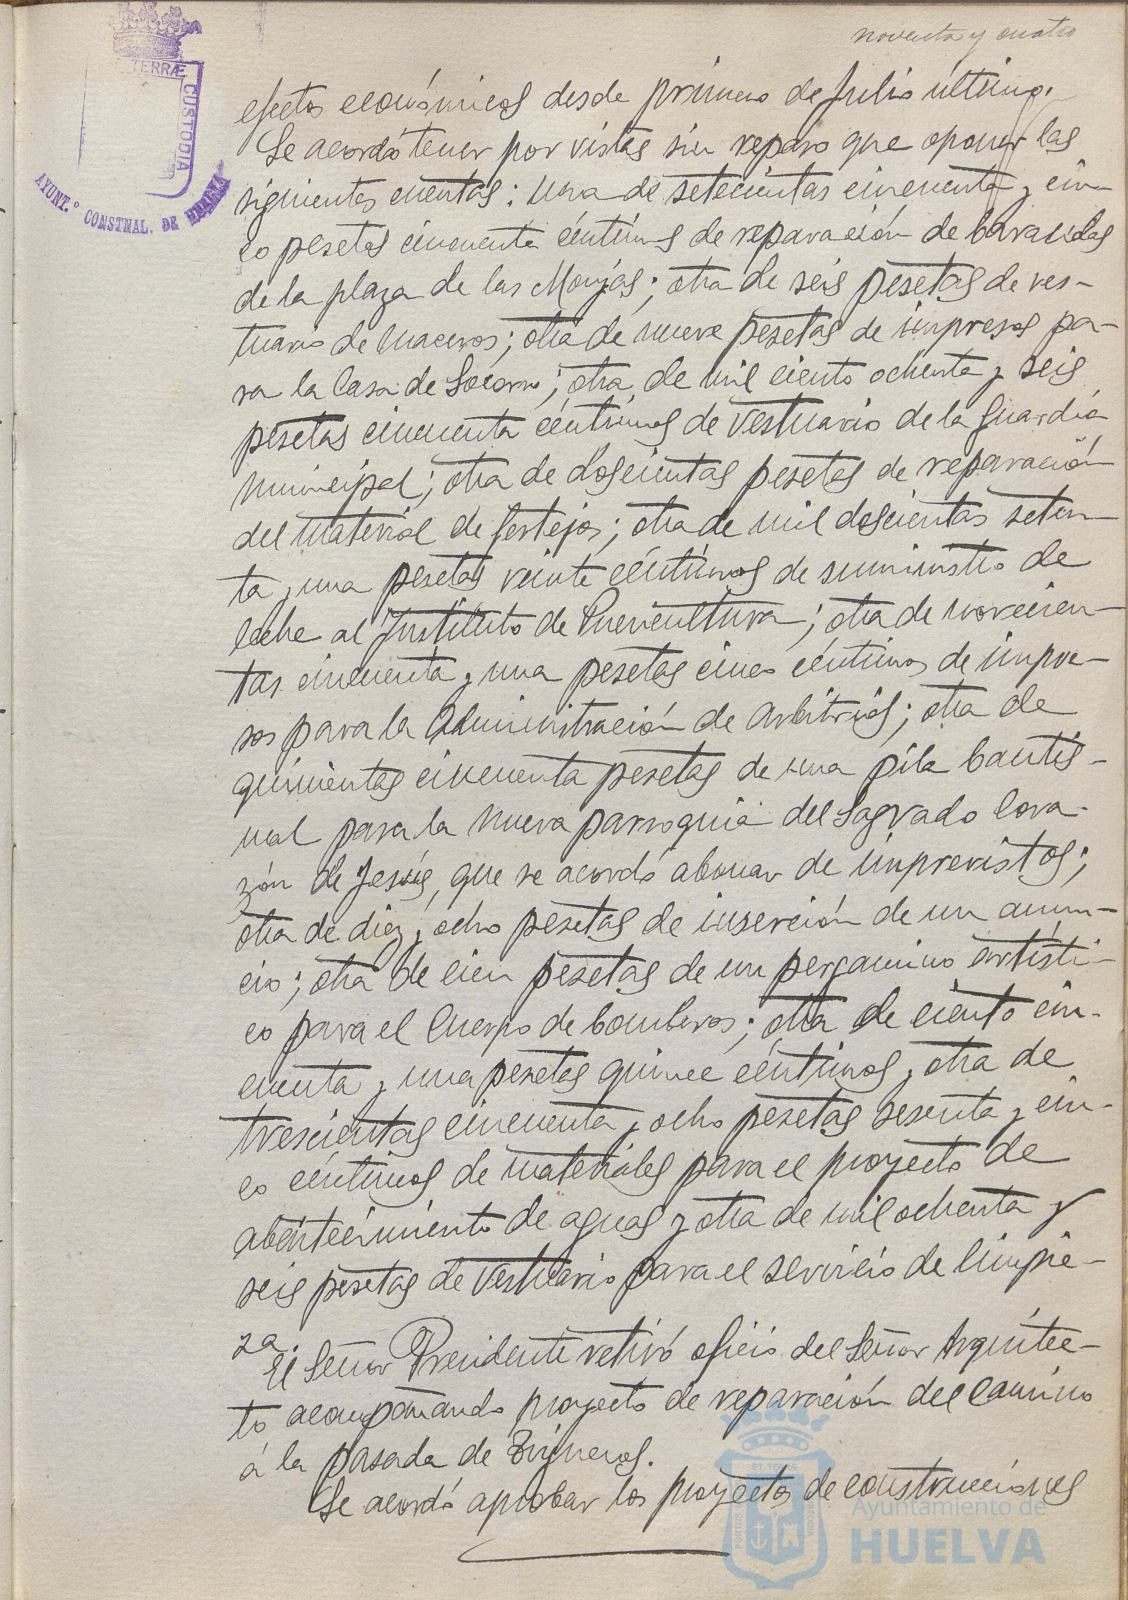 noventa y cuatro
TERRÆ
CUSTODIA
AYUNT.º CONSTNAL. DE HUELVA
efectos económicos desde primero de Julio último.
Se acordó tener por vistas sin reparo que oponer las
siguientes cuentas: una de setecientas cincuenta y cin-
co pesetas cincuenta céntimos de reparación de barandas
de la plaza de las Monjas; otra de seis pesetas de ves-
tuario de maceros; otra de nueve pesetas de impresos pa-
ra la Casa de Socorro; otra de mil ciento ochenta y seis
pesetas cincuenta céntimos de vestuario de la guardia
municipal; otra de doscientas pesetas de reparación
del material de festejos; otra de mil doscientas seten-
ta y una pesetas veinte céntimos de suministro de
leche al Instituto de Puericultura; otra de novecien-
tas cincuenta y una pesetas cinco céntimos de impre-
sos para la Administración de Arbitrios; otra de
quinientas cincuenta pesetas de una pila bautis-
mal para la nueva parroquia del Sagrado Cora-
zón de Jesús, que se acordó abonar de imprevistos;
otra de diez y ocho pesetas de inserción de un anun-
cio; otra de cien pesetas de un pergamino artísti-
co para el Cuerpo de bomberos; otra de ciento cin-
cuenta y una pesetas quince céntimos y otra de
trescientas cincuenta y ocho pesetas sesenta y cin-
co céntimos de materiales para el proyecto de
abastecimiento de aguas y otra de mil ochenta y
seis pesetas de vestuario para el servicio de limpie-
za.
El Señor Presidente retiró oficio del Señor Arquitec-
to acompañando proyecto de reparación del Camino
á la pasada de Trigueros.
Se acordó aprobar los proyectos de construcciones
Ayuntamiento de
HUELVA